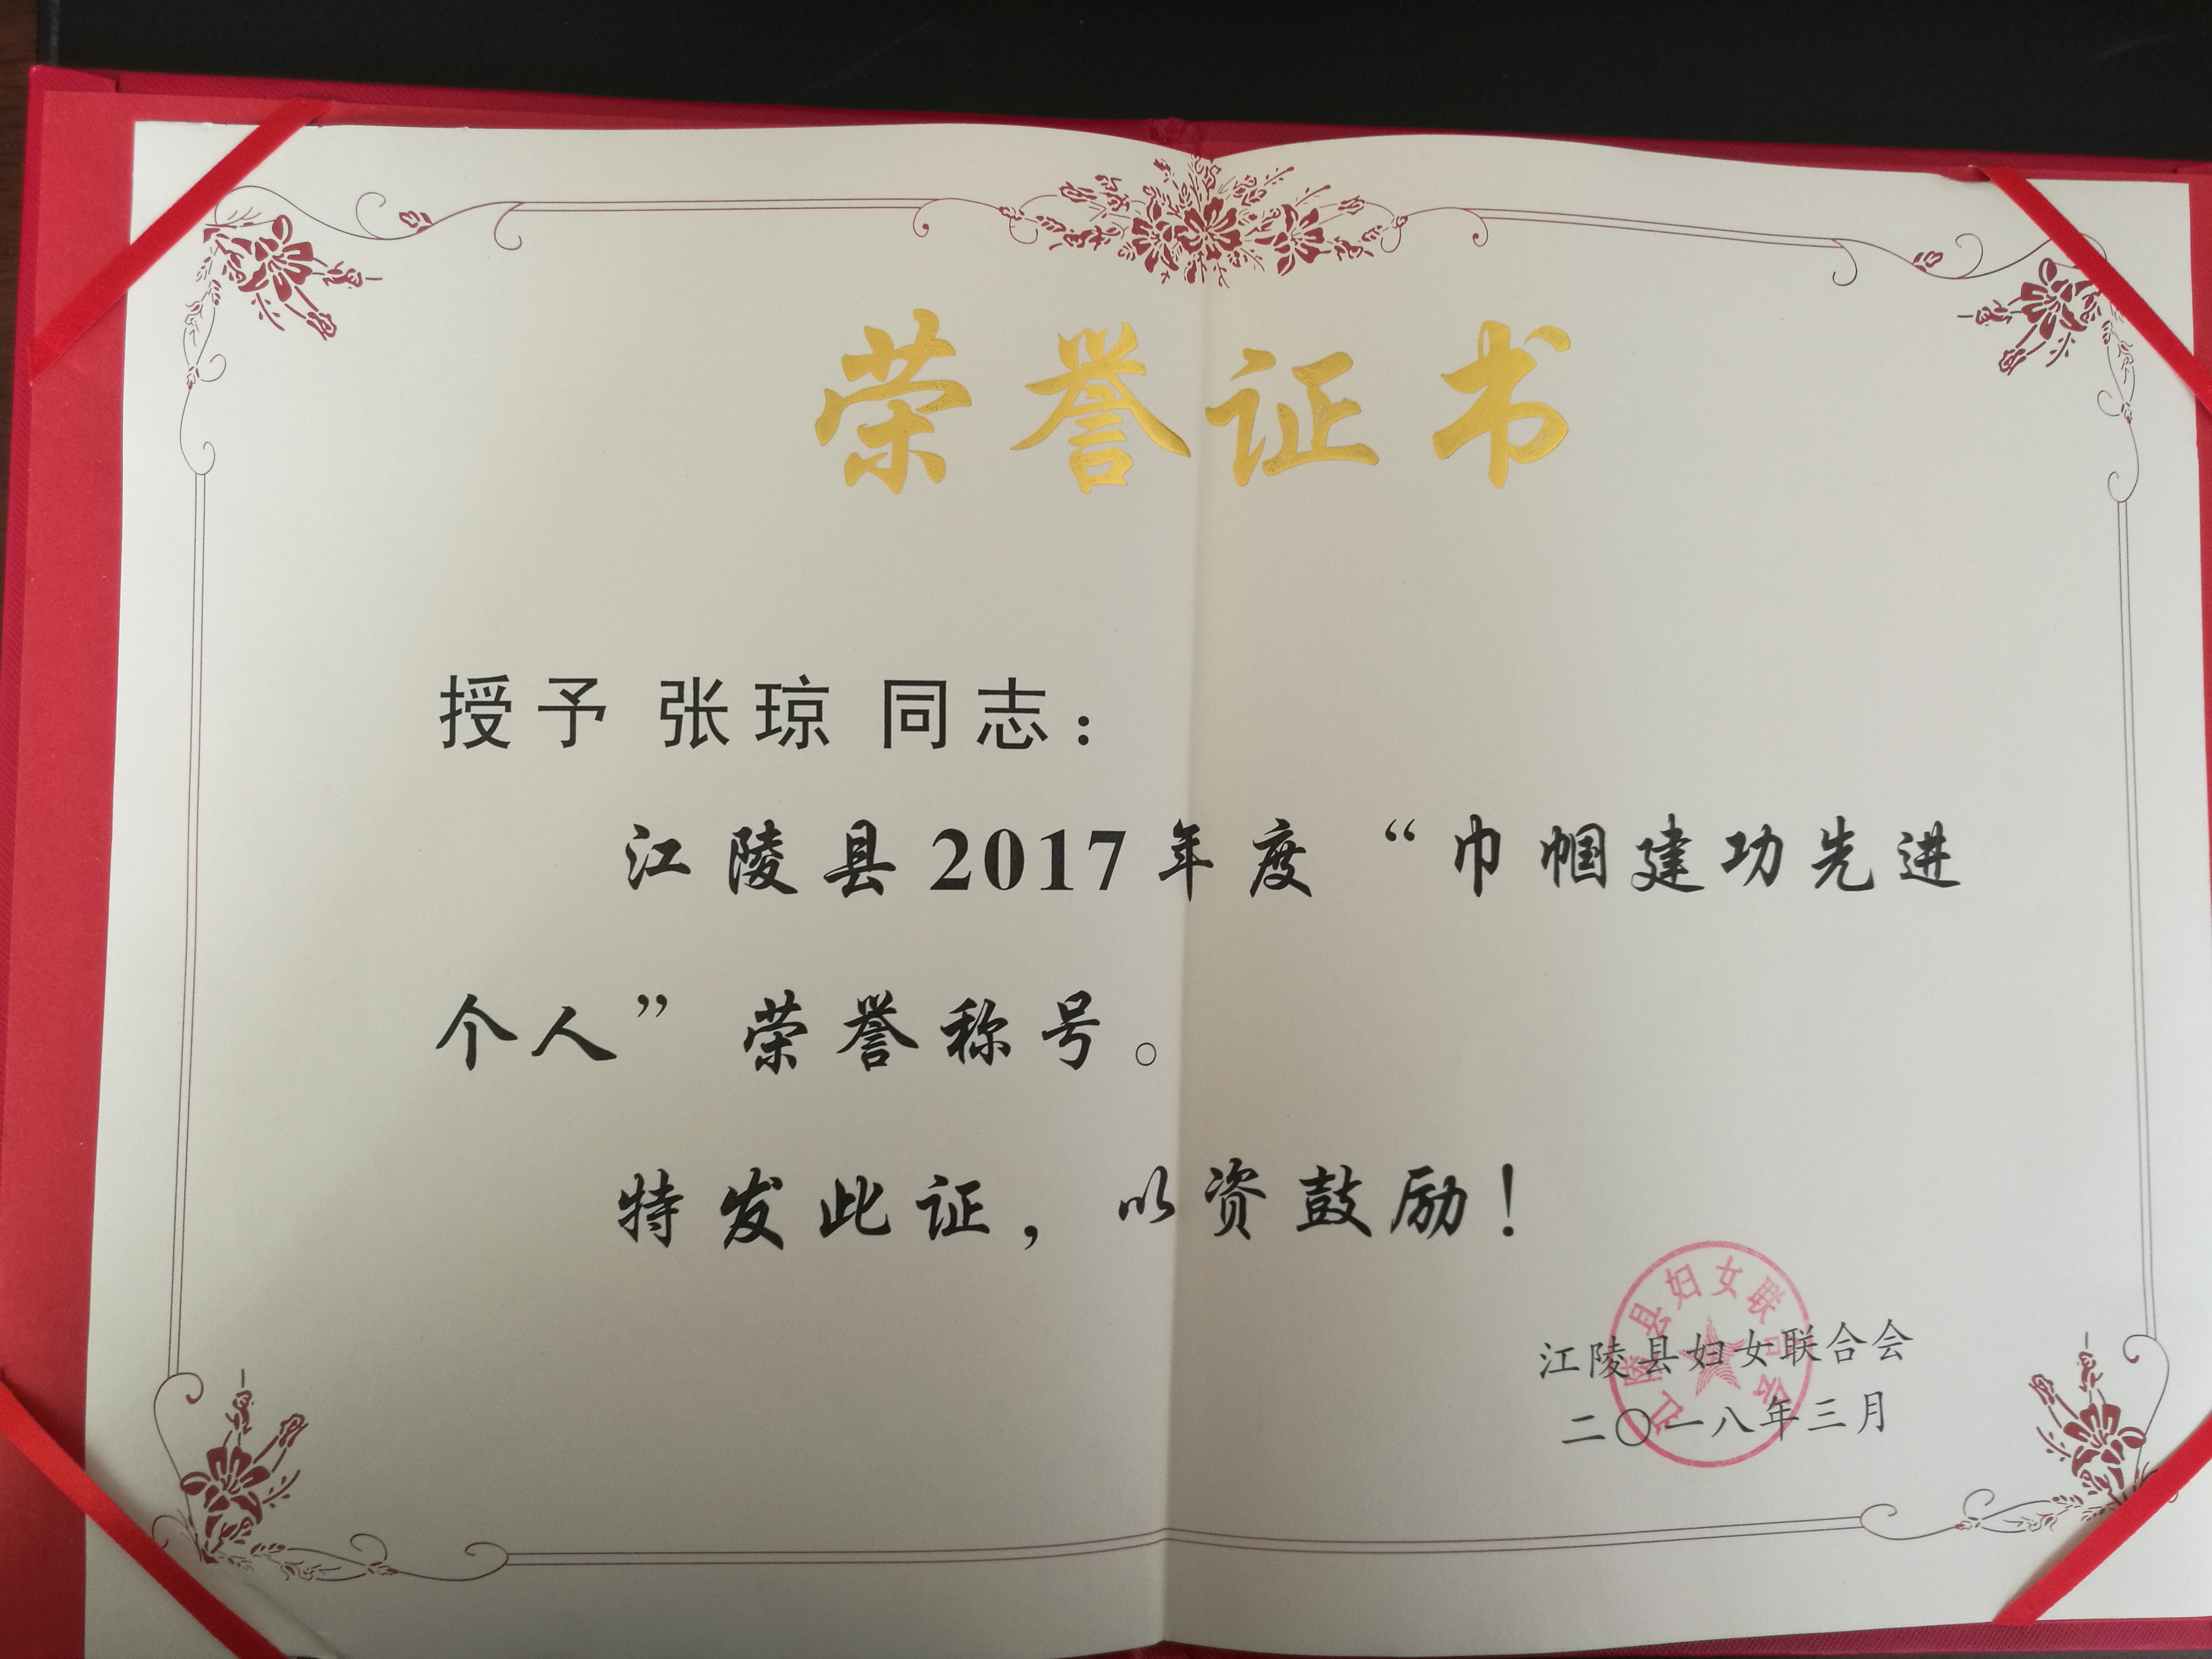 荣誉证书
授予 张琼 同志：
江陵县2017年度“巾帼建功先进
个人”荣誉称号。
特发此证，以资鼓励！
江陵县妇女联合会
江陵县妇女联合会
二〇一八年三月